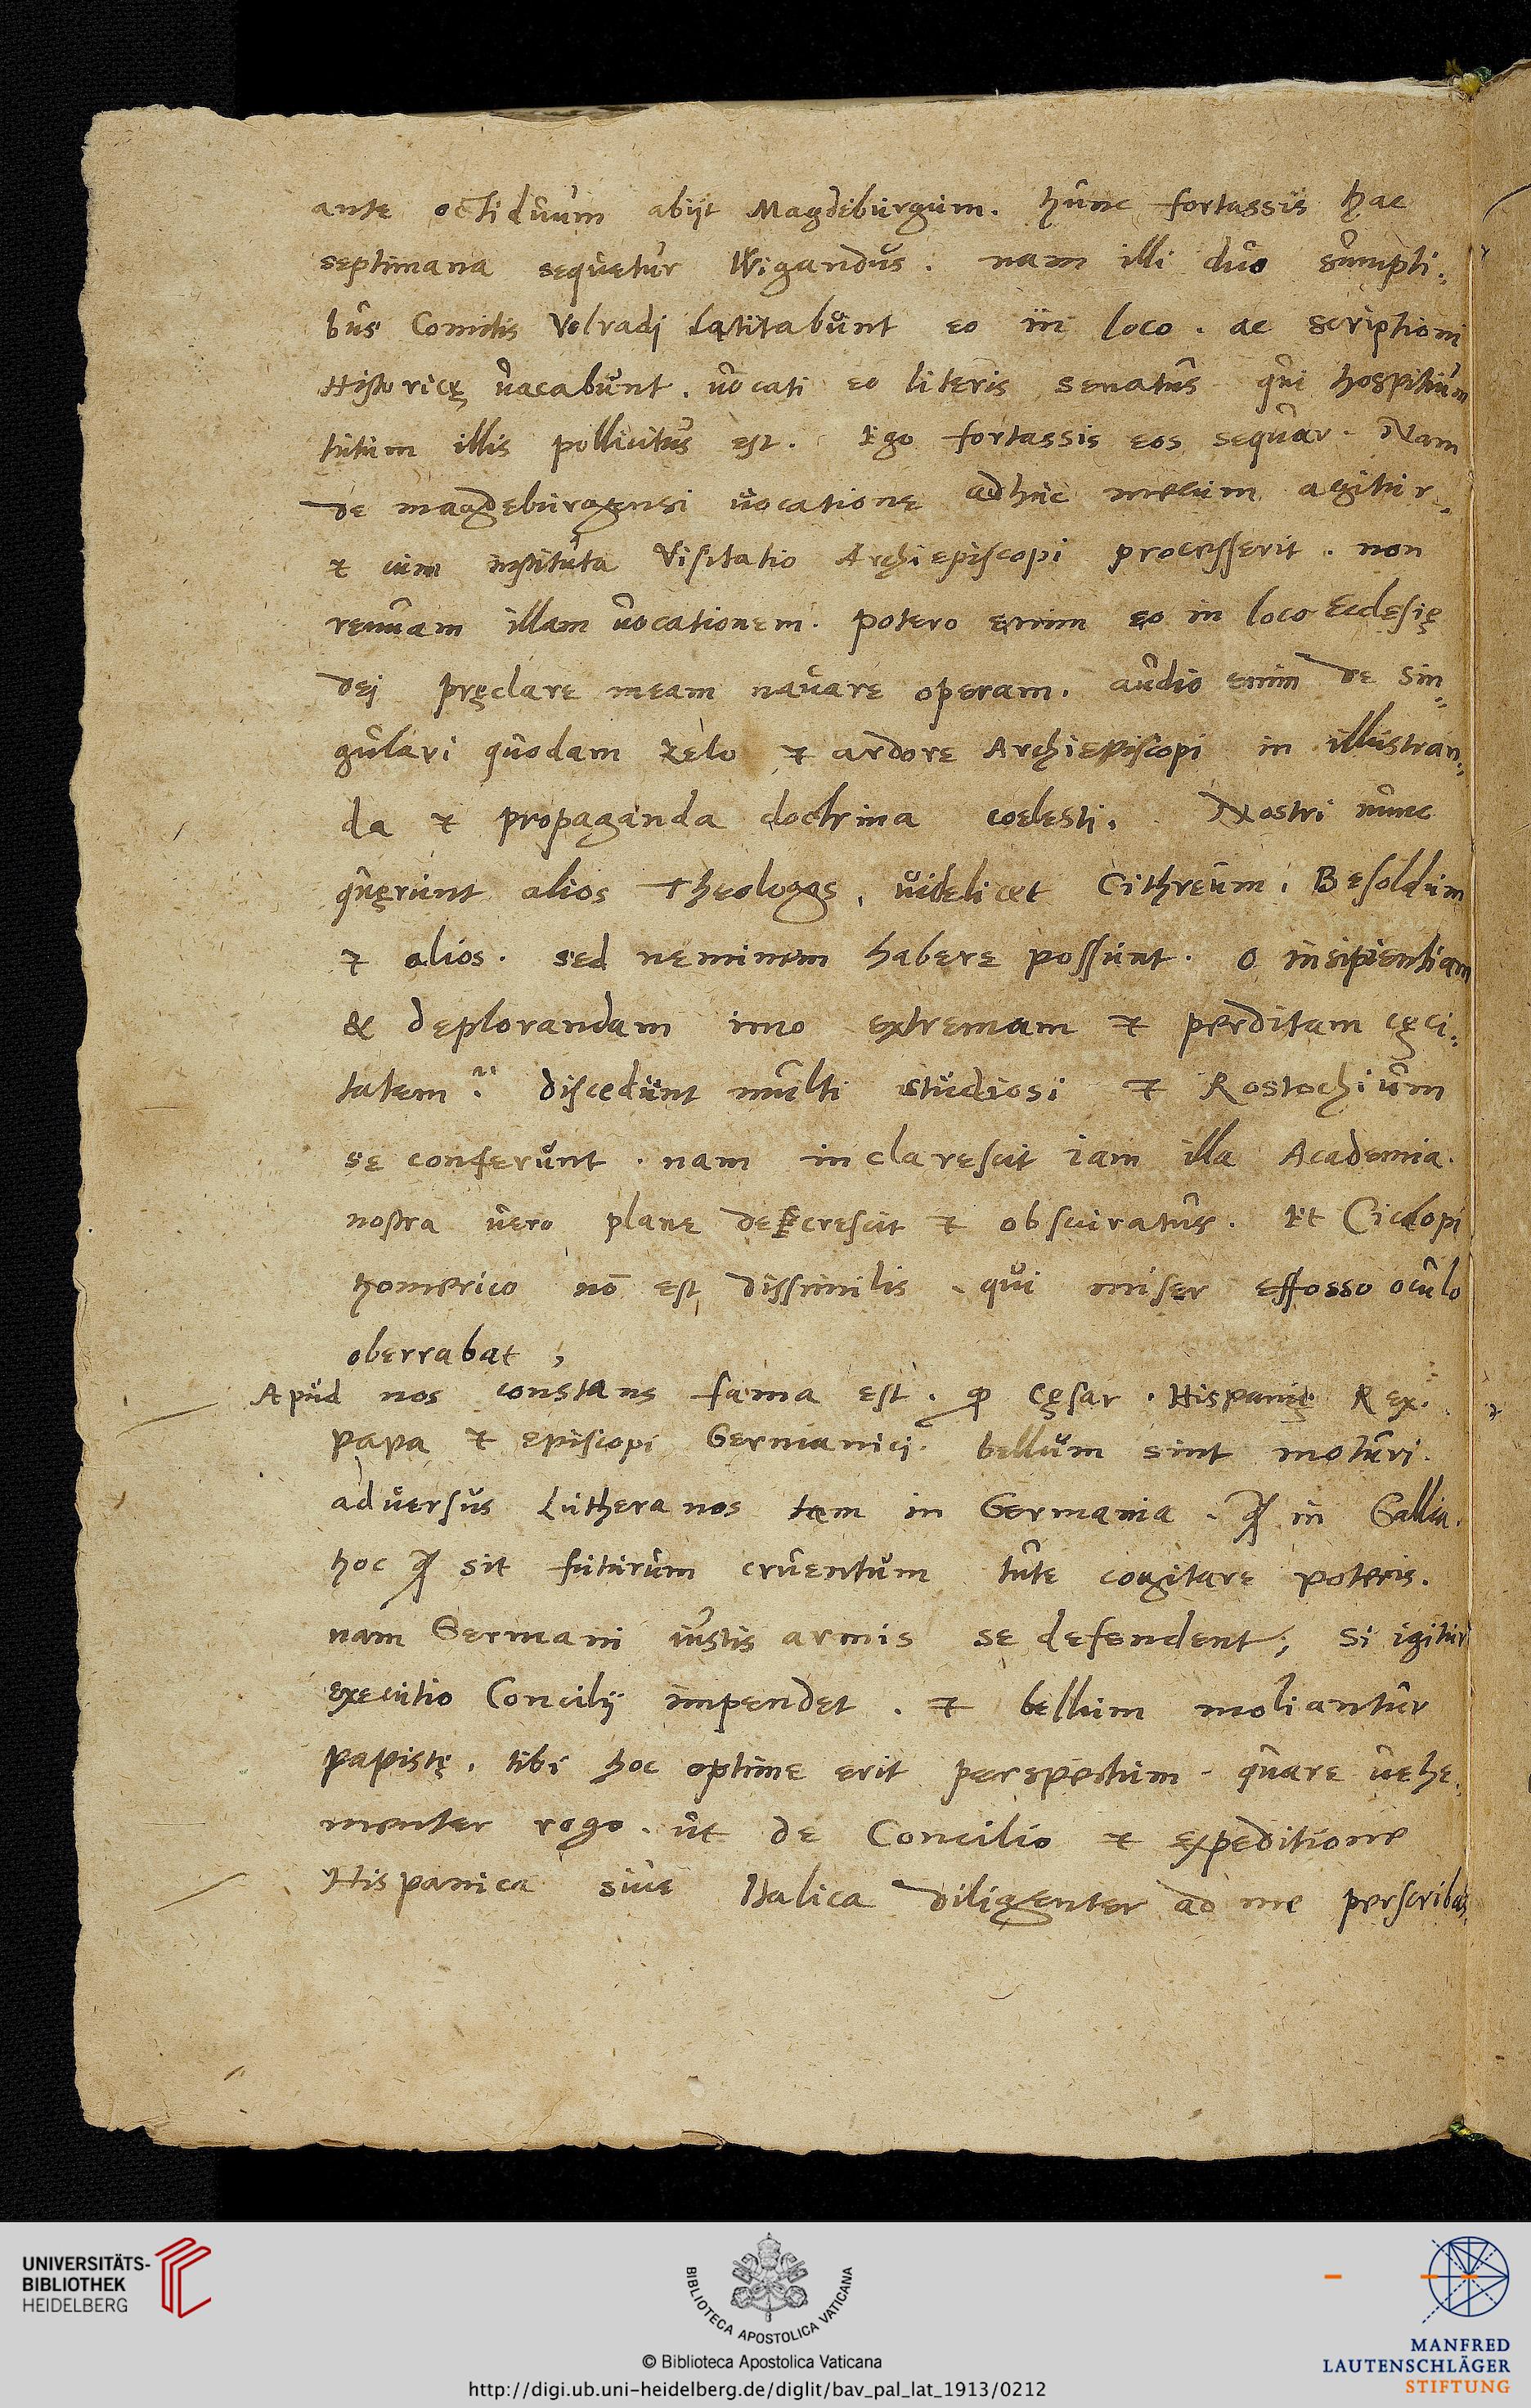 ante octiduum abijt Magdeburgum. hunc fortassis hac
septimana sequetur Wigandus. nam illi duo sumpti-
bus Comitis Volradi latitabunt eo in loco. ac scriptioni
Historicę vacabunt. vocati eo literis senatus qui hospitium
tutum illis pollicitus est. Ego fortassis eos sequar. Nam
de magdeburgensi vocatione adhuc mecum agitur.
et cum instituta Visitatio Archiepiscopi processerit. non
renuam illam vocationem. potero enim eo in loco Ecclesię
dej pręclare meam navare operam. audio enim de sin-
gulari quodam zelo et ardore Archiepiscopi in illustran-
da et propaganda doctrina coelesti. Nostri nunc
quęrunt alios Theologos, videlicet Cithreum, Besoldum
et alios. sed neminem habere possunt. O insipientiam
& deplorandam imo extremam et perditam cęci-
tatem. discedunt multi studiosi et Rostochium
se conferunt. nam inclarescit iam illa Academia.
nostra vero plane decrescit et obscuratur. Et Ciclopi
homerico nō est dissimilis. qui miser effosso oculo
oberrabat,
Apud nos constans fama est. ꝙ Cęsar. Hispanię Rex.
papa et episcopi Germanici. bellum sint moturi.
adversus Lutheranos tam in Germania. ꝙ in Gallia.
hoc ꝙ sit futurum cruentum tute cogitare poteris.
nam Germani iustis armis se defendent; Si igitur
executio Concilij impendet. et bellum moliantur
papistę. tibi hoc optime erit perspectum. quare vehe-
menter rogo. ut de Concilio et expeditione
Hispanica sive Italica diligenter ad me perscribas.
UNIVERSITÄTS-
BIBLIOTHEK
HEIDELBERG
BIBLIOTECA APOSTOLICA VATICANA
© Biblioteca Apostolica Vaticana
http://digi.ub.uni-heidelberg.de/diglit/bav_pal_lat_1913/0212
MANFRED
LAUTENSCHLÄGER
STIFTUNG